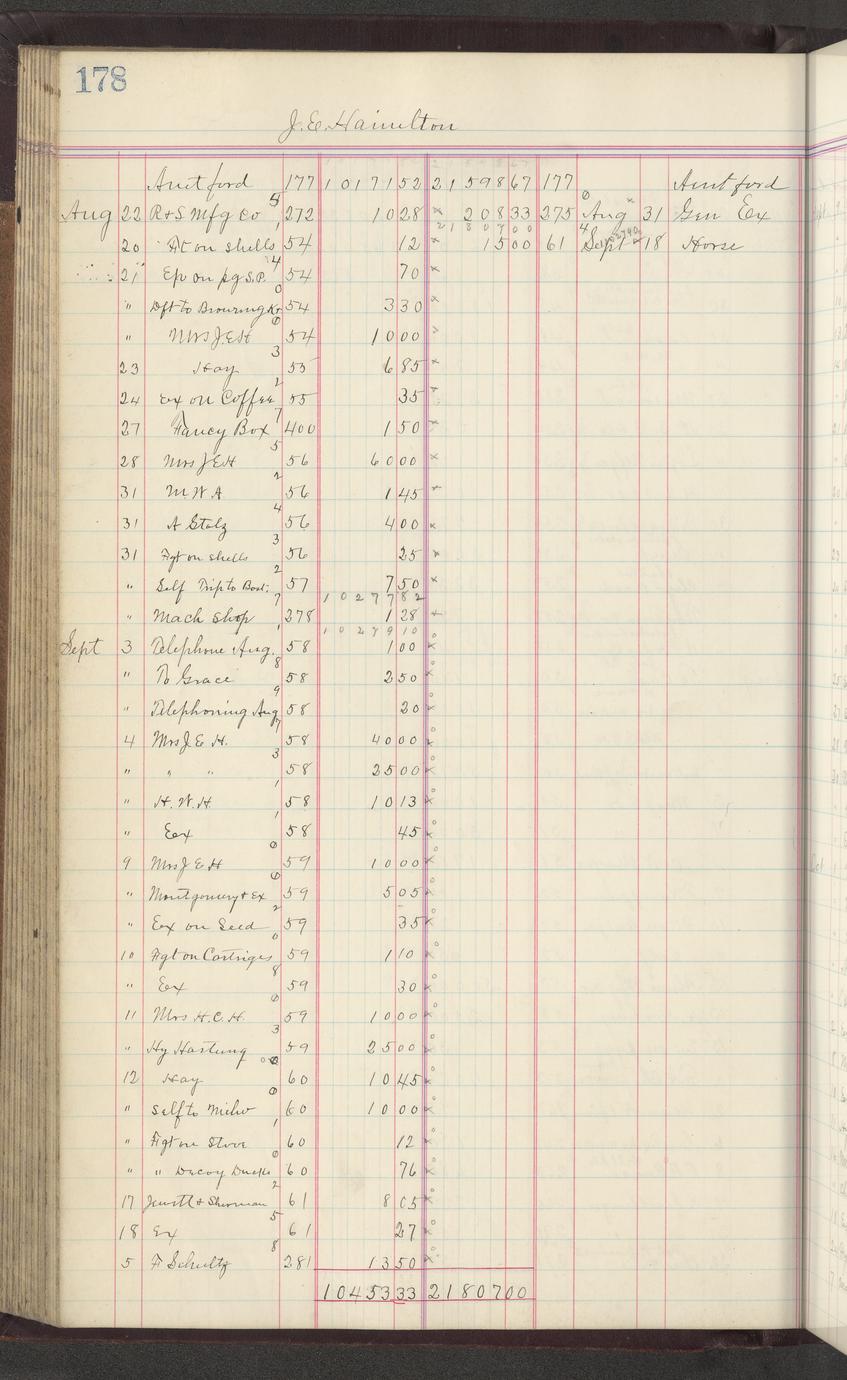 178
J.E. Hamilton
Amt ford 177 1017152 2159867 177 Amt ford
Aug 22 R+S Mfg Co 272 1028 20833 275 Aug 31 Gen Ex
2180700
20 Frt on shells 54 12 1500 61 Sept 18 Horse
21 Exp on pg S.P. 54 70
" Dft to Browning 54 330
" Mrs J.E.H 54 1000
23 Hay 55 685
24 Ex on Coffee 55 35
27 Fancy Box 400 150
28 Mrs J E H 56 6000
31 M.W.A 56 145
31 A Stolz 56 400
31 Fgt on shells 56 25
" Self Trip to Bost. 57 750
1027782
" Mach shop 278 128
1027910
Sept 3 Telephone Aug. 58 100
" To Grace 58 250
" Telephoning Aug 58 20
4 Mrs J.E.H. 58 4000
" " " 58 2500
" H.W.H 58 1013
" Ex 58 45
9 Mrs J E H 59 1000
" Montgomery + Ex 59 505
" Ex on Seed 59 35
10 Fgt on Cartriges 59 110
" Ex 59 30
11 Mrs H.C.H. 59 1000
" Hy Hastung 59 2500
12 Hay 60 1045
" Self to Milw 60 1000
" Fgt on Stove 60 12
" " Decoy Ducks 60 76
17 Jewett & Sherman 61 805
18 Ex 61 27
5 F Schultz 281 1350
1045333 2180700